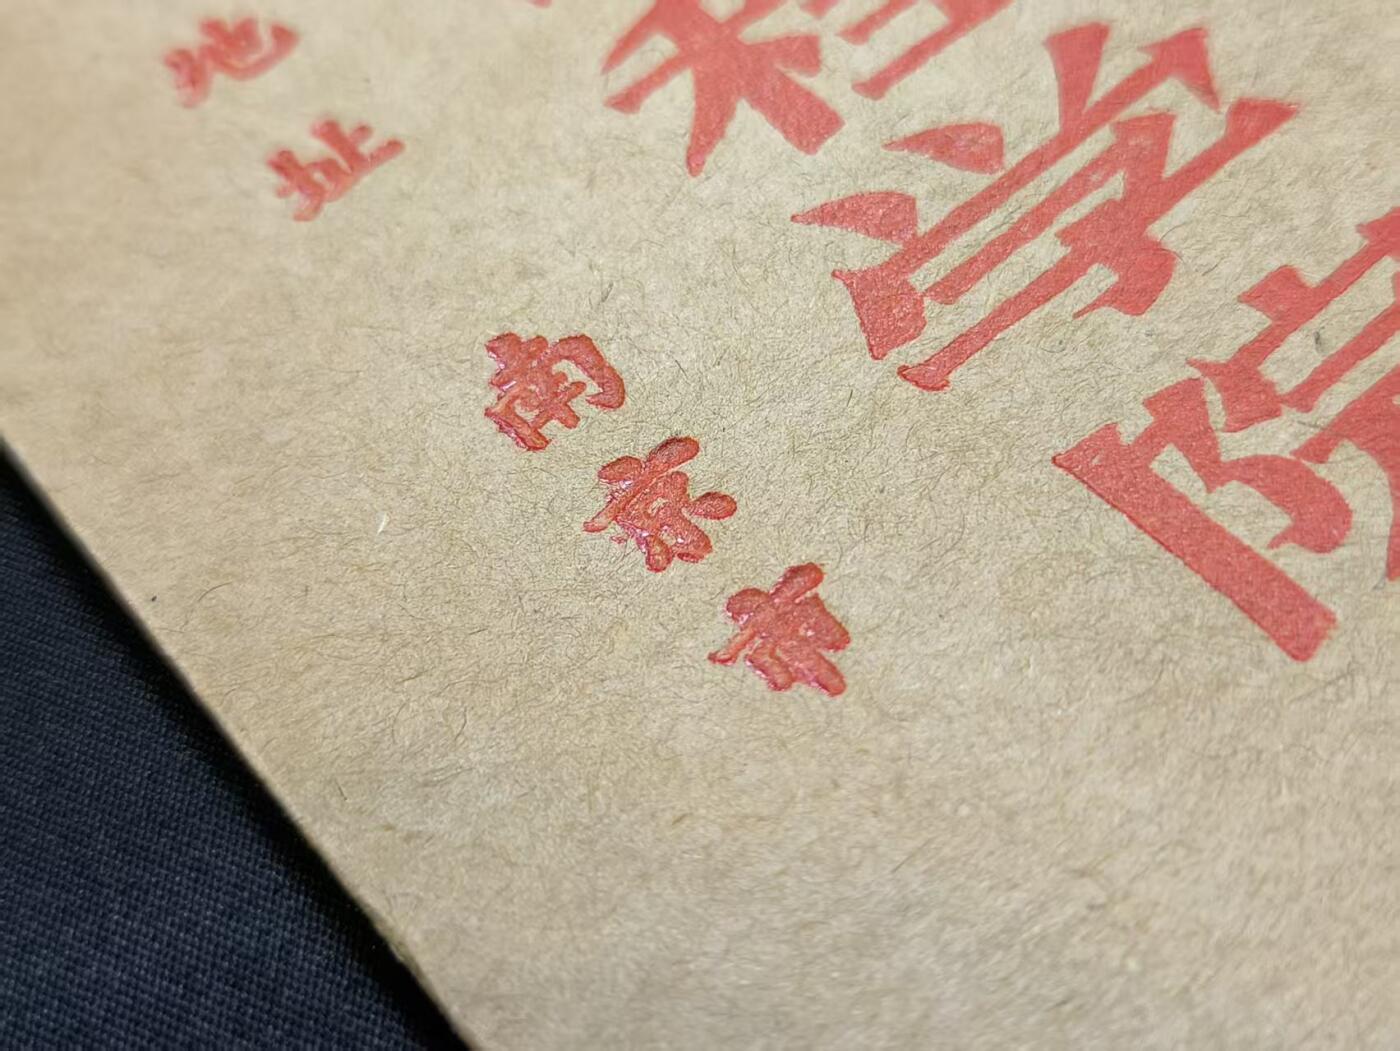 程学院
地址
南京市